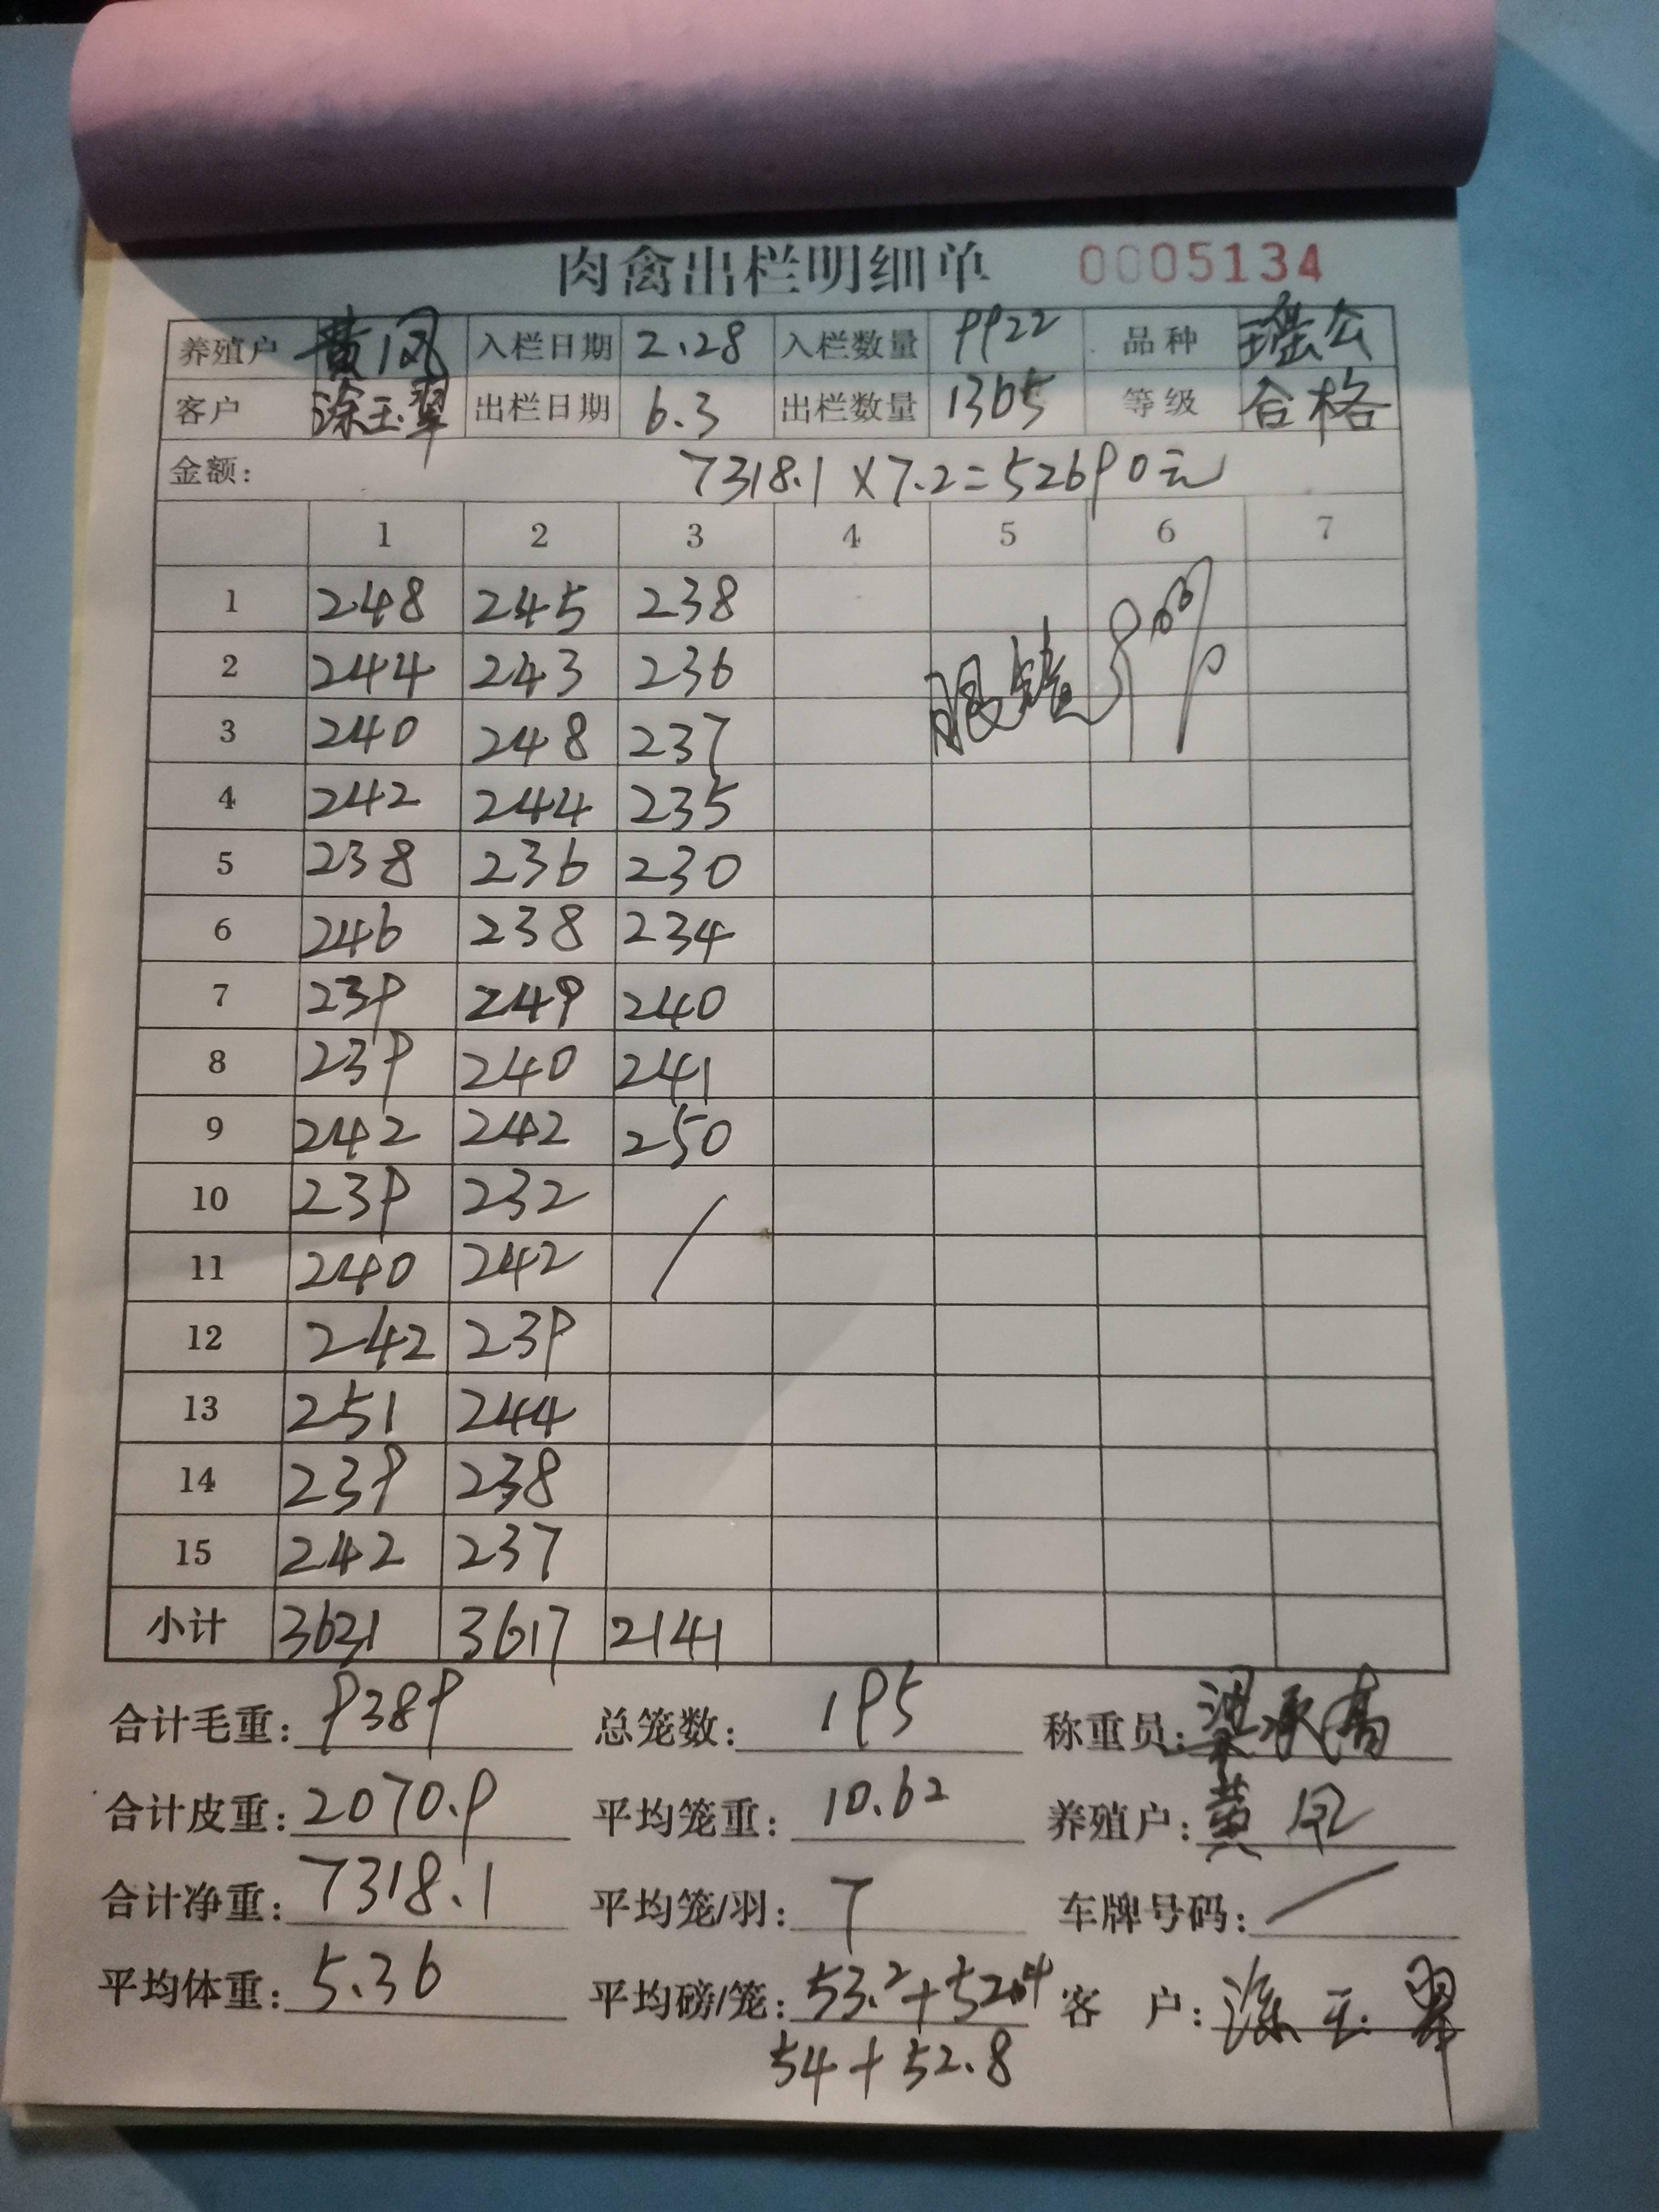 肉禽出栏明细单 0005134
养殖户 黄凤 入栏日期 2.28 入栏数量 9922 品种 瑶公
客户 涂玉翠 出栏日期 6.3 出栏数量 1365 等级 合格
金额: 7318.1×7.2=52690元
1 2 3 4 5 6 7
1 248 245 238
2 244 243 236
3 240 248 237
4 242 244 235
5 238 236 230
6 246 238 234
7 239 249 240
8 239 240 241
9 242 242 250
10 239 232 /
11 240 242
12 242 239
13 251 244
14 239 238
15 242 237
小计 3631 3617 2141
合计毛重: 9389 总笼数: 195 称重员: 梁承高
合计皮重: 2070.9 平均笼重: 10.62 养殖户: 黄凤
合计净重: 7318.1 平均笼/羽: 7 车牌号码: /
平均体重: 5.36 平均磅/笼: 53.2+52.4 客 户: 涂玉翠
54+52.8